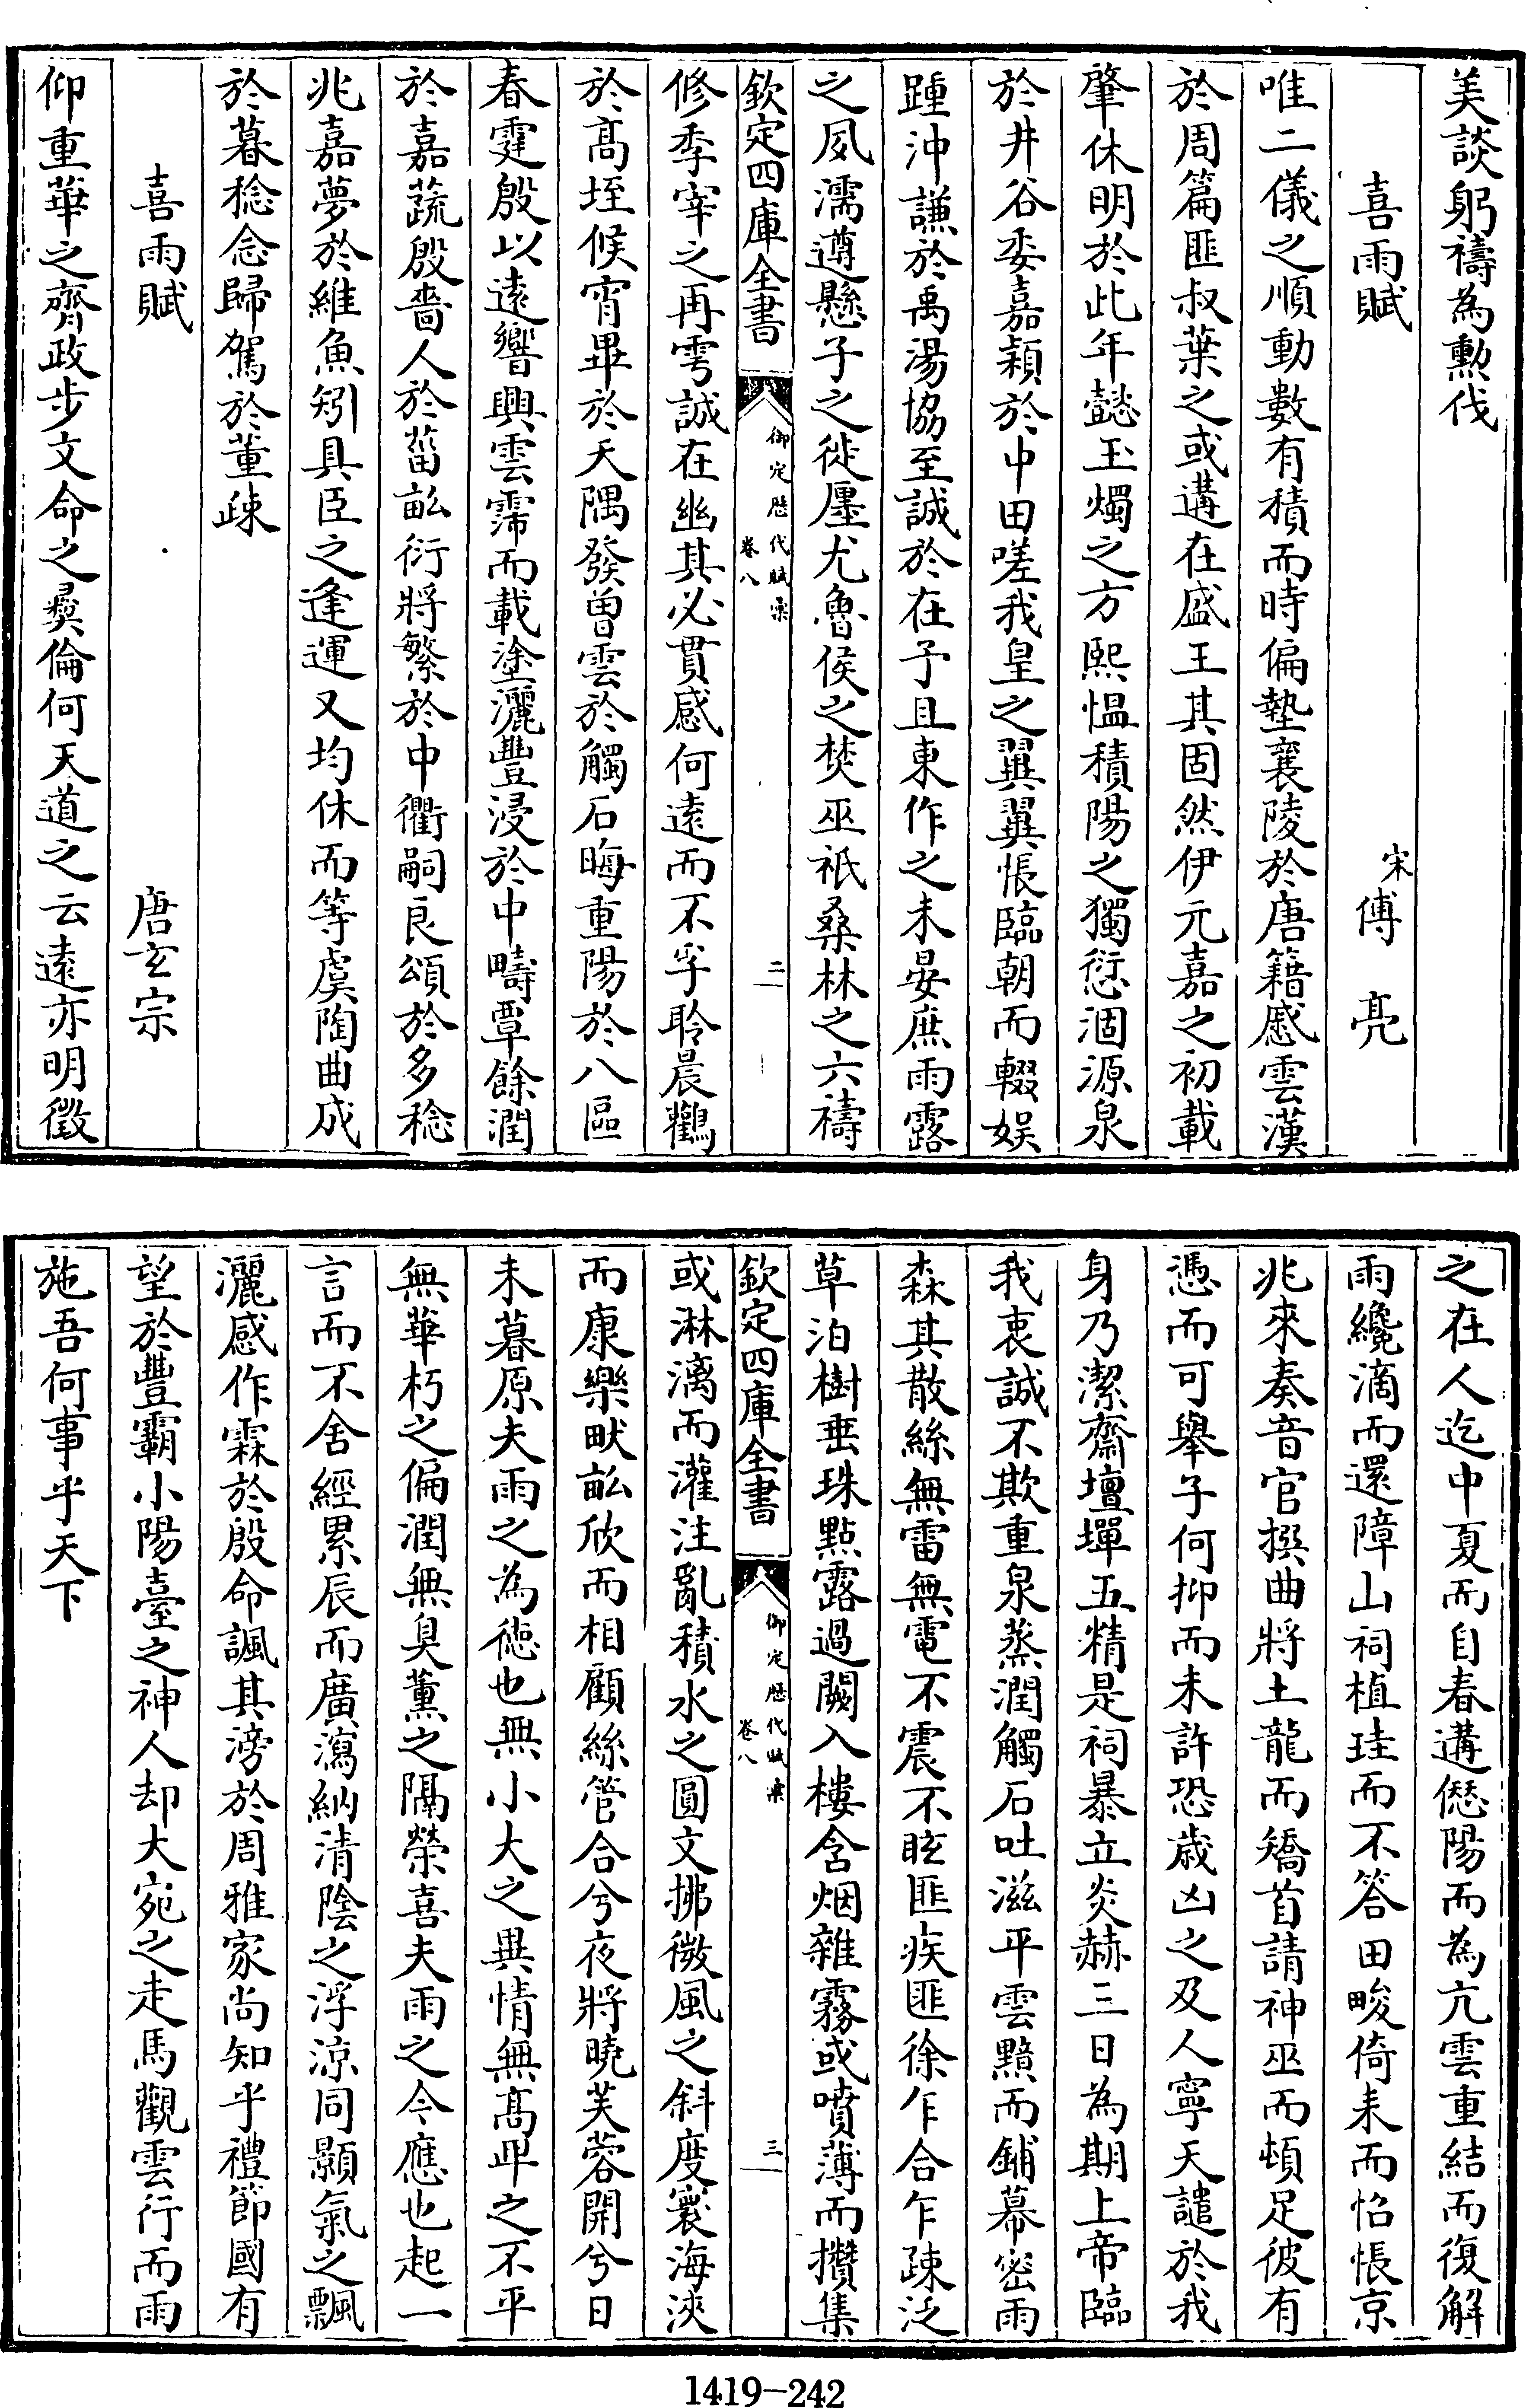 美談躬禱為勲伐
喜雨賦
宋傅亮
唯二儀之順動數有積而時偏墊襄陵於唐籍慼雲漢
於周篇匪叔葉之或遘在盛王其固然伊元嘉之初載
肇休明於此年懿玉燭之方熙愠積陽之獨愆涸源泉
於井谷委嘉穎於中田嗟我皇之翼翼悵臨朝而輟娱
踵沖謙於禹湯協至誠於在予且東作之未晏庶雨露
之夙濡遵懸子之徙㕓尤魯侯之焚巫祇桑林之六禱
欽定四庫全書
御定歴代賦彚
卷八
二
修季宰之再雩誠在幽其必貫感何遠而不孚聆晨鸛
於髙垤候宵畢於天隅發曾雲於觸石晦重陽於八區
春霆殷以遠響興雲霈而載塗灑豐浸於中疇覃餘潤
於嘉蔬殷嗇人於菑畝衍將繁於中衢嗣良頌於多稔
兆嘉夢於維魚矧具臣之逢運又均休而等虞陶曲成
於暮稔念歸駕於董疎
喜雨賦
唐玄宗
仰重華之齊政步文命之彛倫何天道之云遠亦明徵
之在人迄中夏而自春遘僽陽而為亢雲重結而復解
雨纔滴而還障山祠植珪而不答田畯倚耒而怊悵京
兆來奏音官撰曲將土龍而矯首請神巫而頓足彼有
憑而可舉子何抑而未許恐歳凶之及人寧天譴於我
身乃潔齋壇墠五精是祠暴立炎赫三日為期上帝臨
我衷誠不欺重泉蒸潤觸石吐滋平雲黯而鋪幕密雨
森其散絲無雷無電不震不眩匪疾匪徐乍合乍疎泛
草泊樹垂珠㸃露過闕入樓含烟雜霧或噴薄而攢集
欽定四庫全書
御定歴代賦彚
卷八
三
或淋漓而灌注亂積水之圓文拂微風之斜度寰海浹
而康樂畎畝欣而相顧絲管合兮夜將曉芙蓉開兮日
未暮原夫雨之為徳也無小大之異情無髙卑之不平
無華朽之偏潤無臭薰之隔榮喜夫雨之今應也起一
言而不舍經累辰而廣瀉納清陰之浮涼同顥氣之飄
灑感作霖於殷命諷其滂於周雅家尚知乎禮節國有
望於豐霸小陽臺之神人却大宛之走馬觀雲行而雨
施吾何事乎天下
1419-242